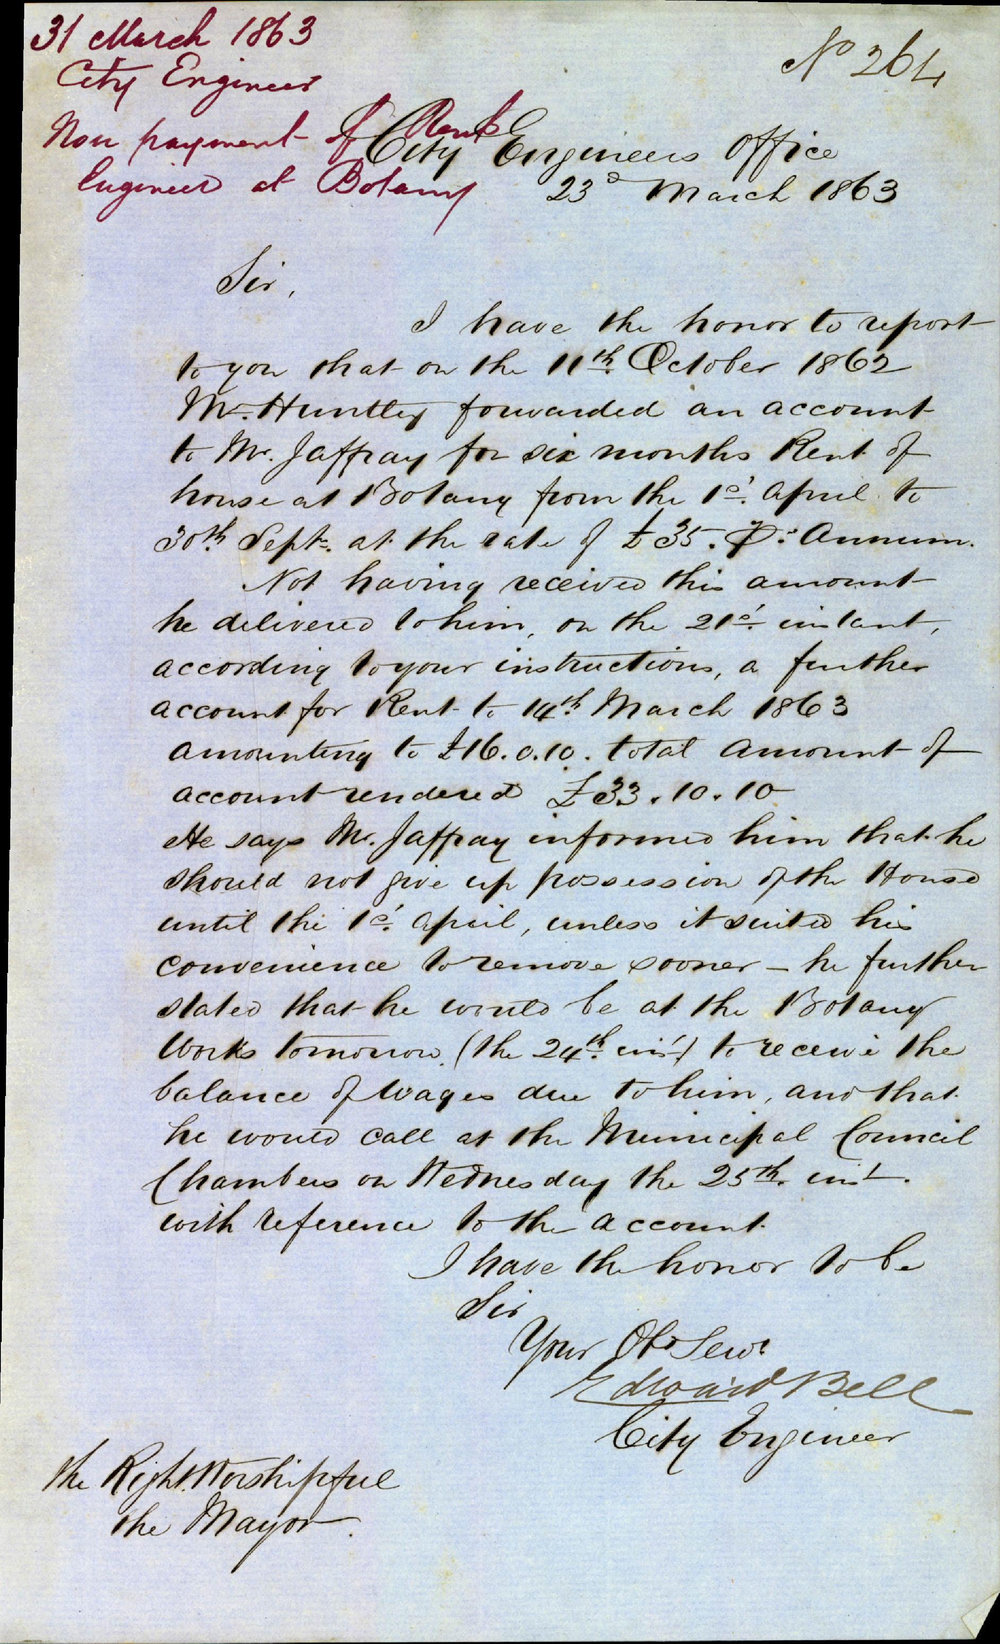 31 March 1863
City Engineer
Non payment of Rent
Engineer at Botany
No 264
City Engineers Office
23d March 1863
Sir,
I have the honor to report
to you that on the 11th October 1862
Mr. Huntley forwarded an account
to Mr. Jaffray for six months Rent of
house at Botany from the 1st April to
30th Septr. at the rate of £35. Pr. Annum.
Not having received this amount
he delivered to him, on the 21st instant,
according to your instructions, a further
account for Rent to 14th March 1863
amounting to £16.0.10. total amount of
account rendered £33.10.10
He says Mr. Jaffray informed him that he
should not give up possession of the House
until the 1st April, unless it suited his
convenience to remove sooner – he further
stated that he would be at the Botany
Works tomorrow (the 24th inst) to receive the
balance of Wages due to him, and that
he would call at the Municipal Council
Chambers on Wednesday the 25th inst.
with reference to the account
I have the honor to be
Sir
Your Obt Servt
Edward Bell
City Engineer
The Right Worshipful
the Mayor.